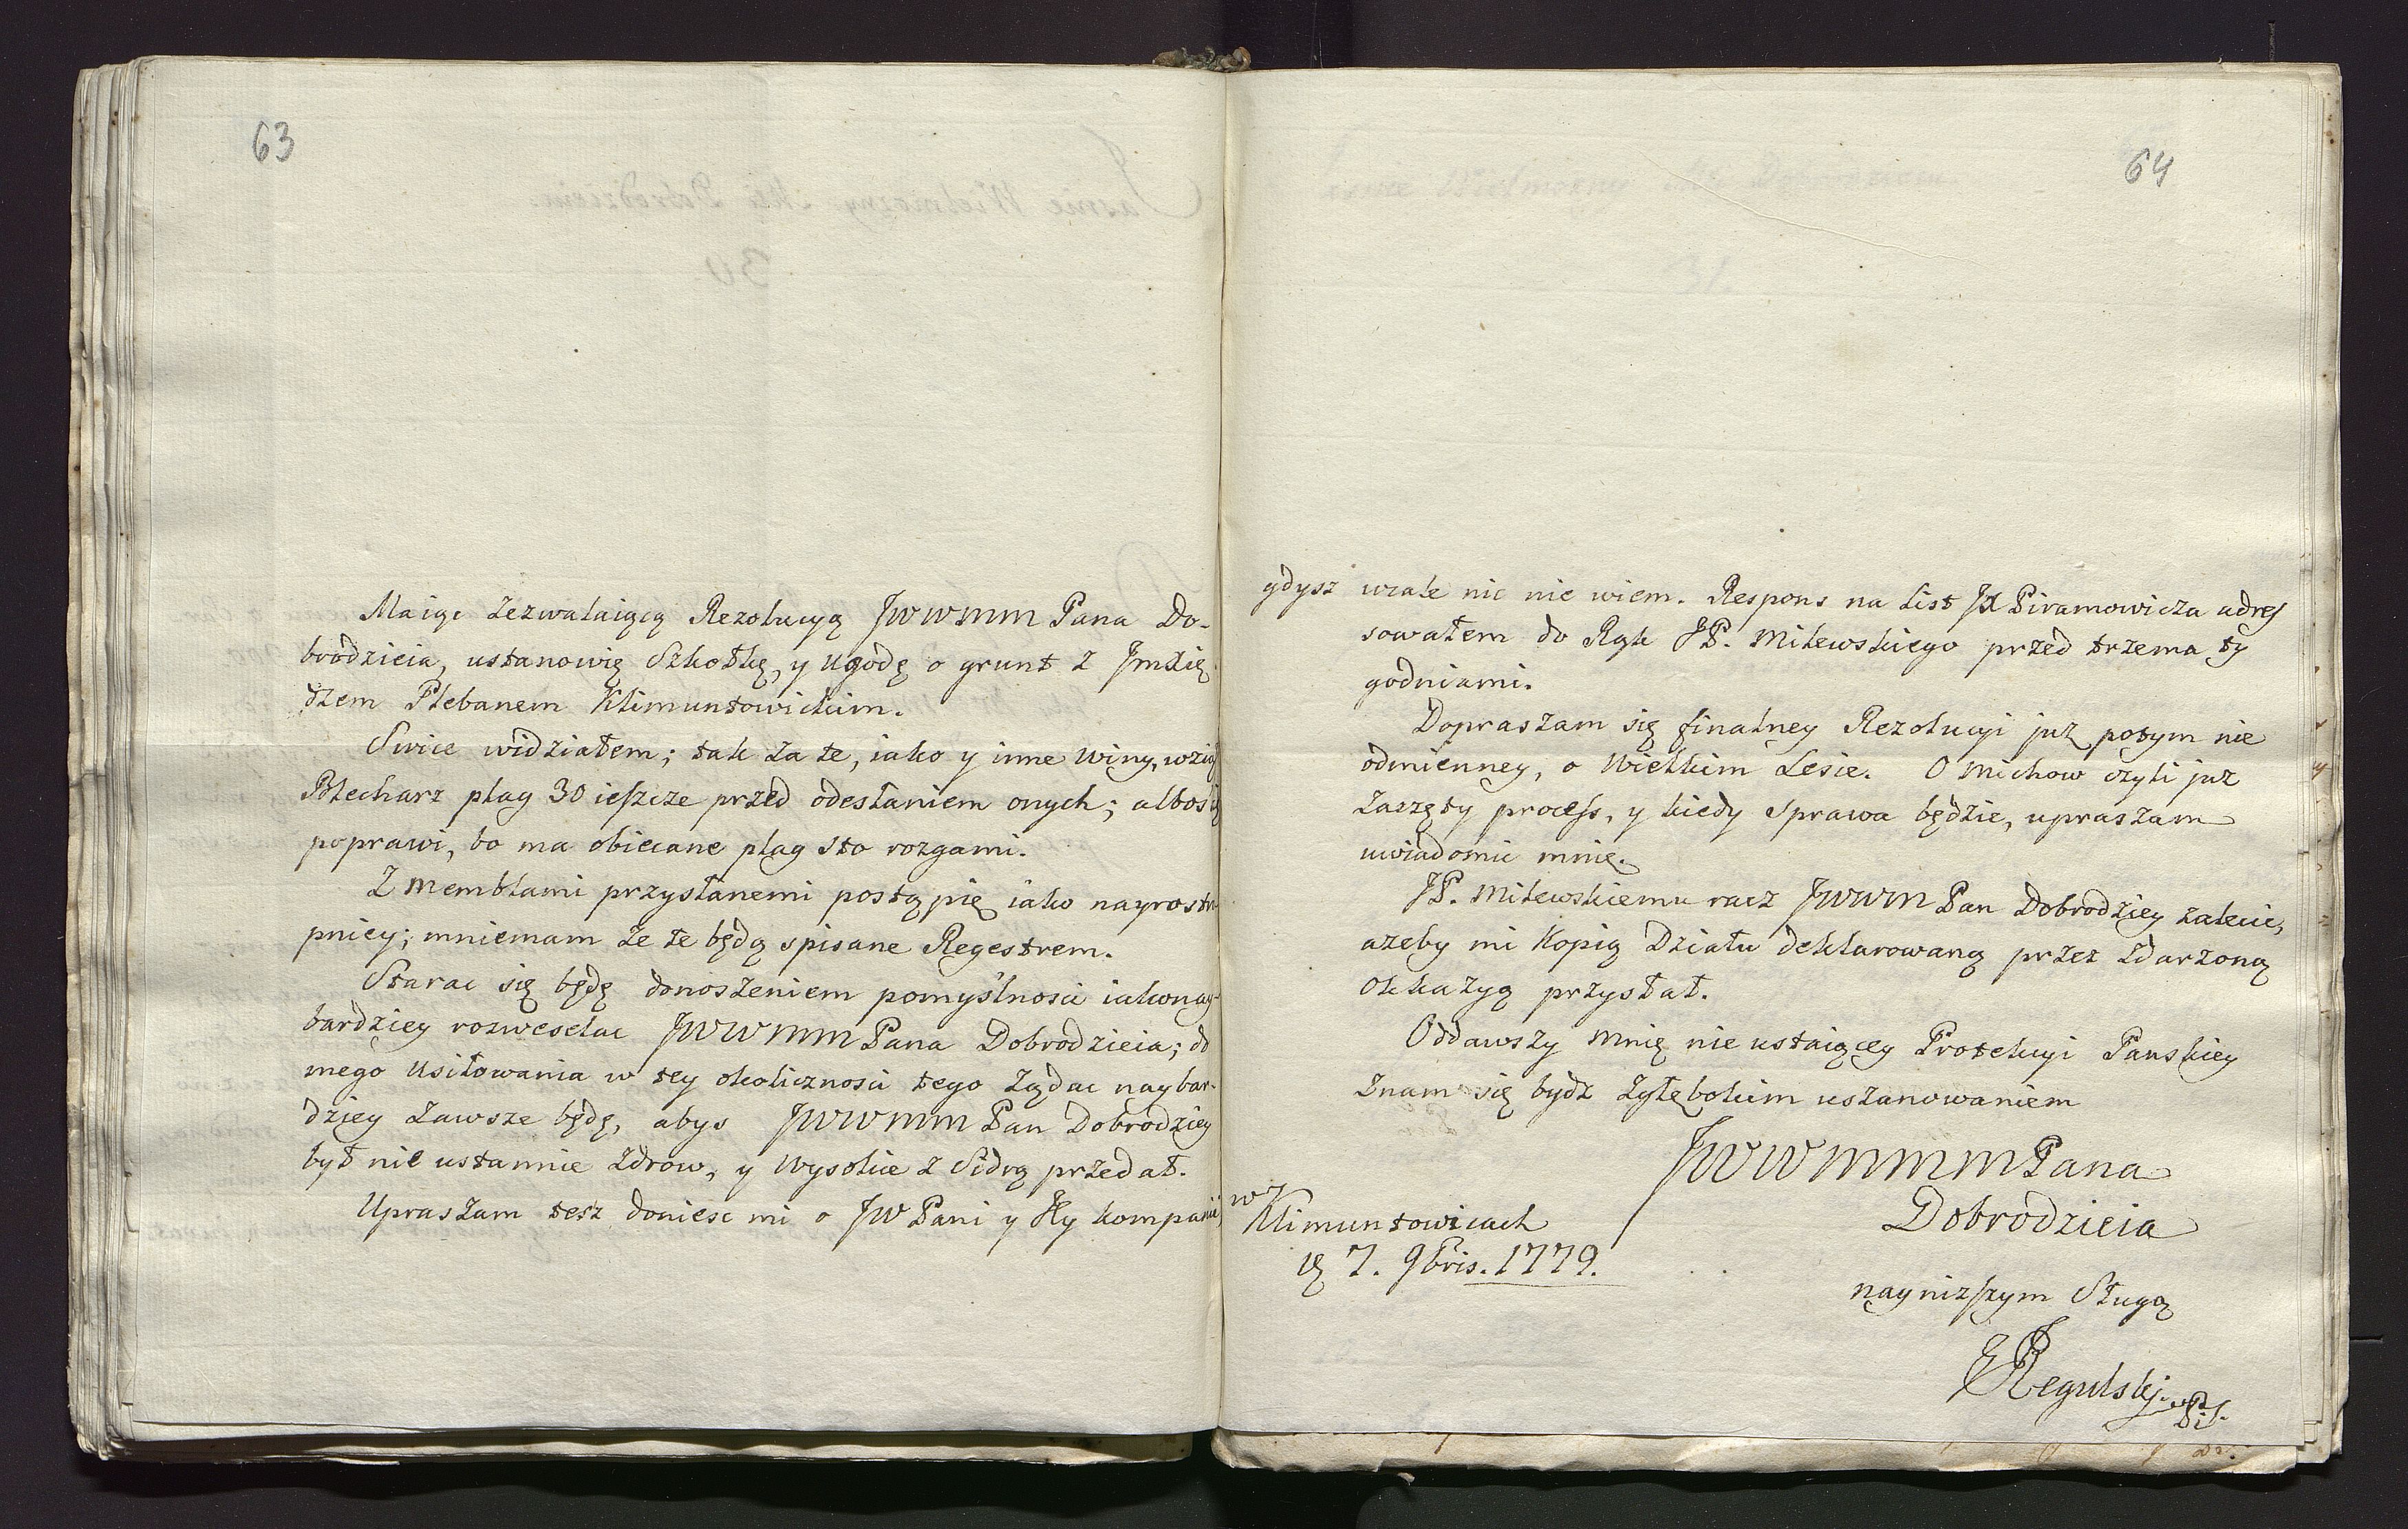 63
Maiąc zezwalaiącą Rezolucyą JWWMM Pana Do-
brodzieia, ustanowię Szkołkę, y Ugodę o grunt z Jmxię
dzem Plebanem Klimuntowickim.
Swice widziałem; tak za te, iako y inne winy, wziął
Blecharz plag 30 ieszcze przed odesłaniem onych; albo się
poprawi, bo ma obiecane plag sto rozgami.
Z Memblami przysłanemi postąpię iako nayrostro
pniey; mniemam że te będą spisane Regestrem.
Starac się będę donoszeniem pomyślnosci iakonay-
bardziey rozweselac JWWMM Pana Dobrodzieia; do
mego usiłowania w tey okolicznosci tego żądac naybar-
dziey zawsze będę, abys JWWMM Pan Dobrodziey
był nieustannie zdrow, y Wysokie z Sidrą przedał.
Upraszam tesz doniesc mi o JW Pani y Jky kompanii,
64
gdysz wcale nic nie wiem. Respons na List JX Piramowicza adres
sowałem do Rąk JP. Milewskiego przed trzema ty
godniami.
Dopraszam się finalney Rezolucyi już potym nie
odmienney, o Wielkim Lesie. O Michow czyli już
zaczęty process, y kiedy sprawa będzie, upraszam
uwiadomic mnię.
JP. Milewskiemu racz JWWM Pan Dobrodziey zalecic,
azeby mi Kopią Działu deklarowaną przez zdarzoną
Okkazyą przysłał.
Oddawszy mnię nieustaiącey Protekcyi Panskiey
znam się bydz zgłębokim uszanowaniem
JWWMMM Pana
Dobrodzieia
w
Klimuntowicach
7. 9bris. 1779.
naynizszym Sługą
Regulski